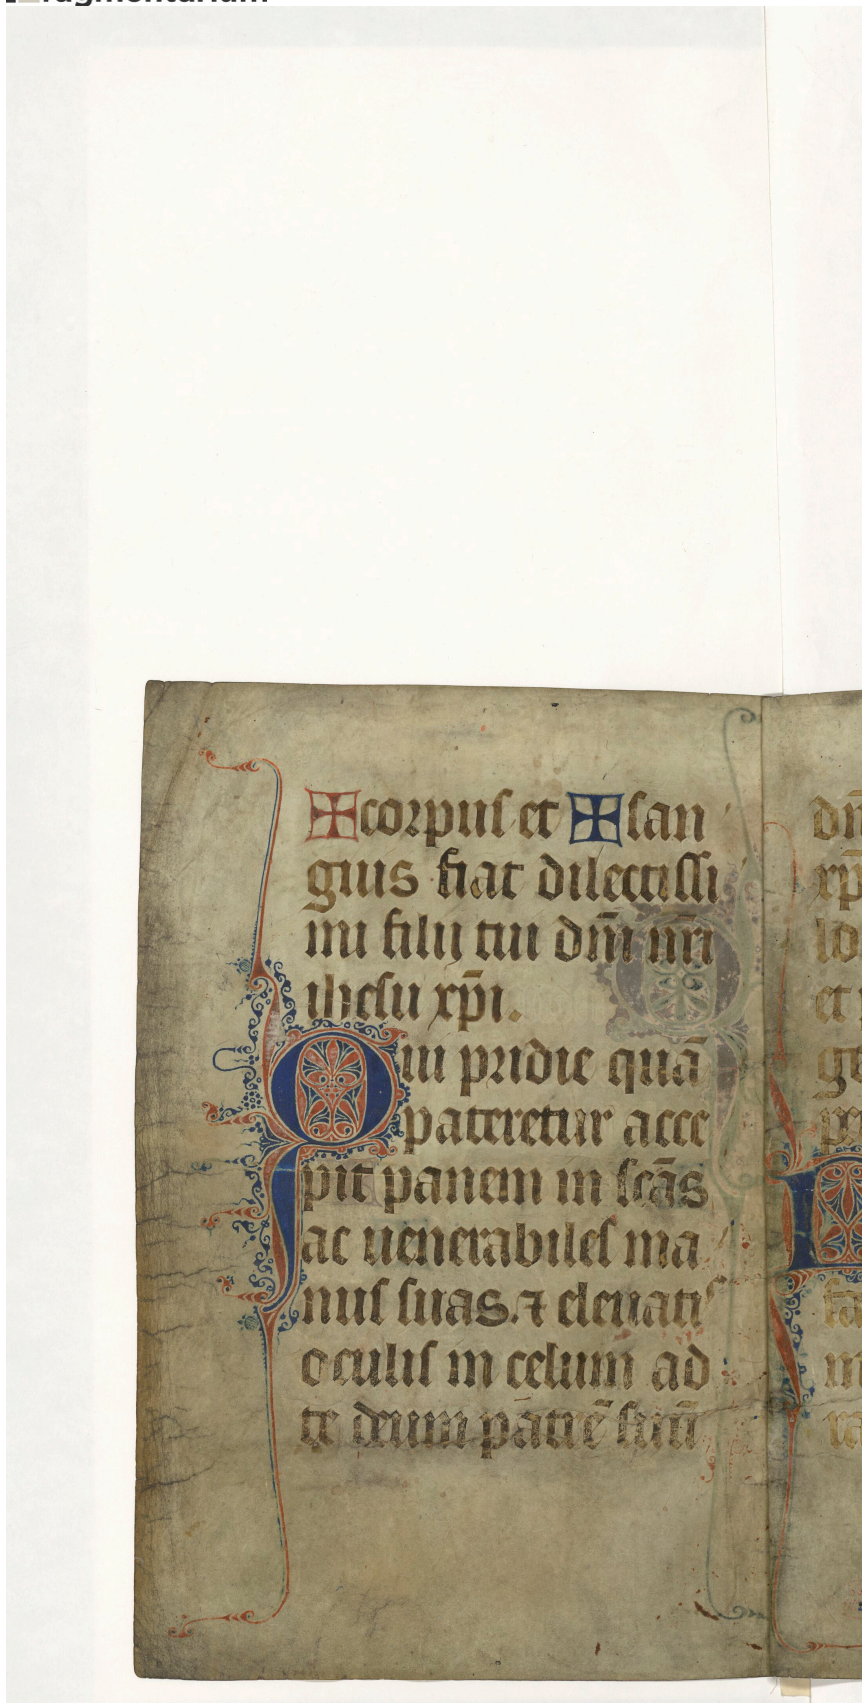 ✠corpus et ✠san
guis fiat dilectissi
mi filij tui dn̄i nr̄i
ihesu xp̄i.
Qui pridie quā
pateretur acce
pit panem in sc̄as
ac uenerabiles ma
nus suas. ⁊ eleuatis
oculis in celum ad
te deum patrē suū
dn̄
xp̄
et